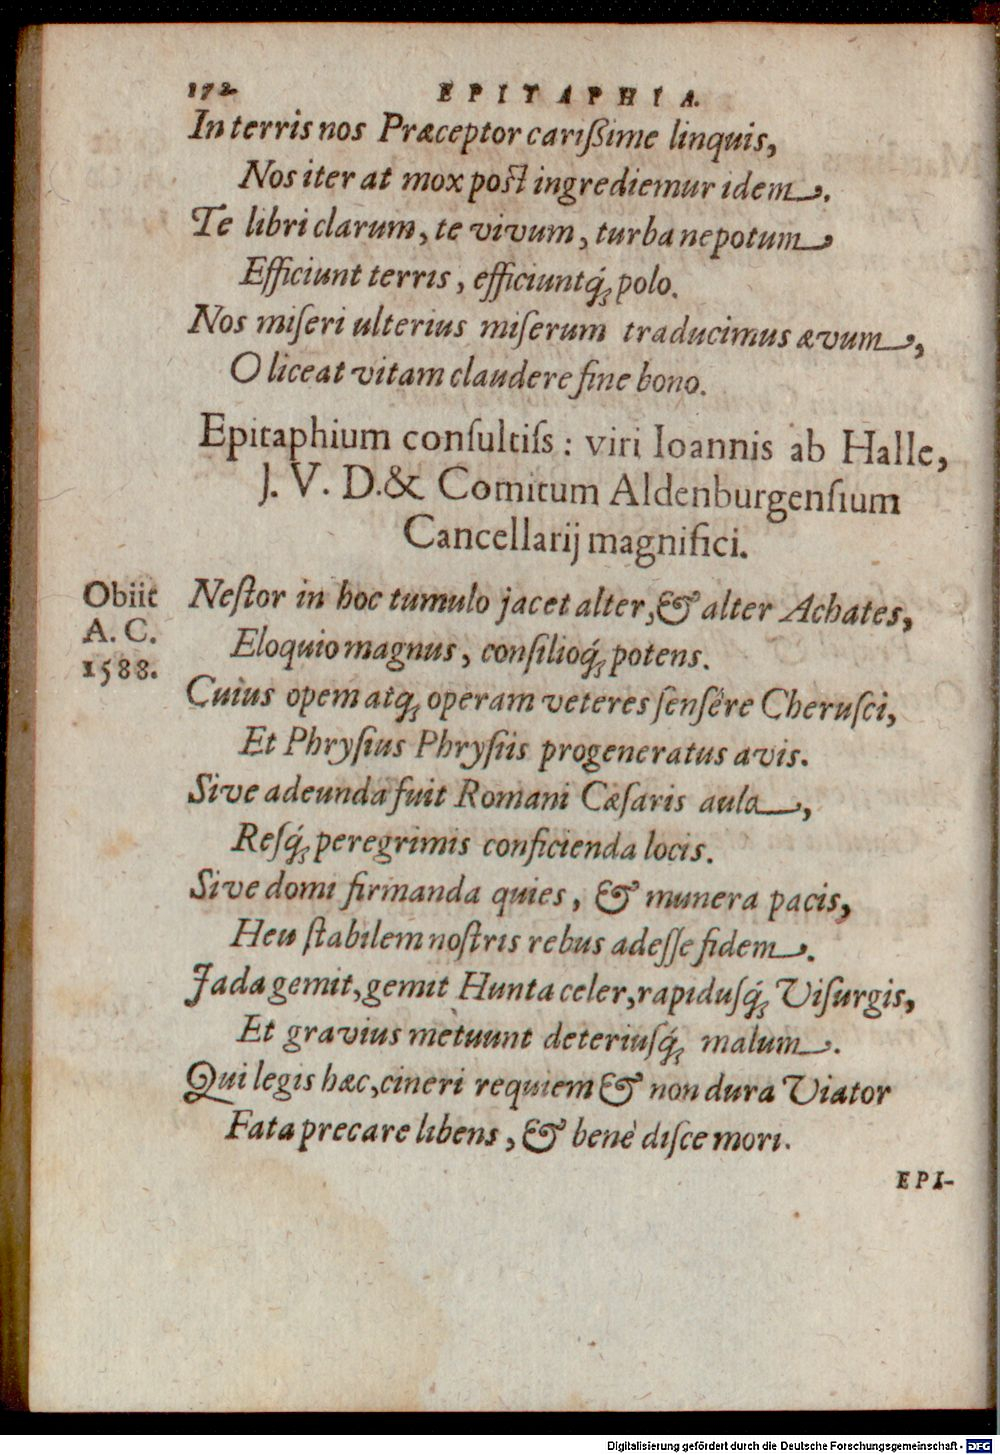 172. EPITAPHIA.
In terris nos Præceptor carißime linquis,
Nos iter at mox post ingrediemur idem.
Te libri clarum, te vivum, turba nepotum
Efficiunt terris, efficiuntq́; polo.
Nos miſeri ulterius miſerum traducimus ævum,
O liceat vitam claudere fine bono.
Epitaphium conſultiſs: viri Ioannis ab Halle,
J. V. D. & Comitum Aldenburgenſium
Cancellarij magnifici.
Obiit
A. C.
1588.
Neſtor in hoc tumulo jacet alter, & alter Achates,
Eloquio magnus, conſilioq́; potens.
Cuius opem atq; operam veteres ſenſére Cheruſci,
Et Phryſius Phryſiis progeneratus avis.
Sive adeunda fuit Romani Cæſaris aula,
Reſq́; peregrimis conficienda locis.
Sive domi firmanda quies, & munera pacis,
Heu ſtabilem noſtris rebus adeſſe fidem.
Jada gemit, gemit Hunta celer, rapiduſq́; Viſurgis,
Et gravius metuunt deteriuſq́; malum.
Qui legis hæc, cineri requiem & non dura Viator
Fata precare libens, & benè diſce mori.
EPI-
Digitalisierung gefördert durch die Deutsche Forschungsgemeinschaft - DFG